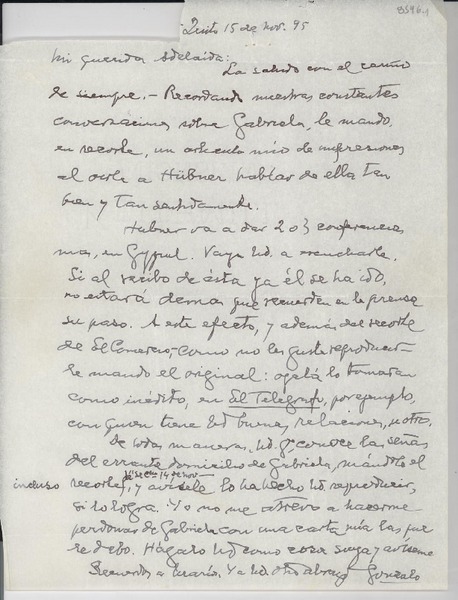 8596.1
Quito 15 de nov. 95
Mi querida Adelaida:
La saludo con el cariño
de siempre. — Recordando nuestras constantes
conversaciones sobre Gabriela, le mando,
en recorte, un artículo mío de impresiones
al oirle a Hübner hablar de ella tan
bien y tan sentidamente.
Hübner va a dar 2 o 3 conferencias
mas, en Gyqul. Vaya Ud. a escucharle.
Si al recibo de ésta ya él se ha ido,
no estará demás que recuerden en la prensa
su paso. A este efecto, y además del recorte
de El Comercio — como no les guste reproducir —
le mando el original: ojalá lo tomaran
como inédito, en El Telégrafo, por ejemplo,
con quien tiene Ud buenas relaciones, u otro.
De todas maneras, Ud. q. conoce las señas
del errante domicilio de Gabriela, mándele el
incluso recorte, de 14 de nov y avísele lo ha hecho Ud. reproducir,
si lo logra. Yo no me atrevo a hacerme
perdonar de Gabriela con una carta mía las que
le debo. Hágalo Ud como cosa suya y avíseme
Recuerdos a Ud. otro abrazo Gonzalo